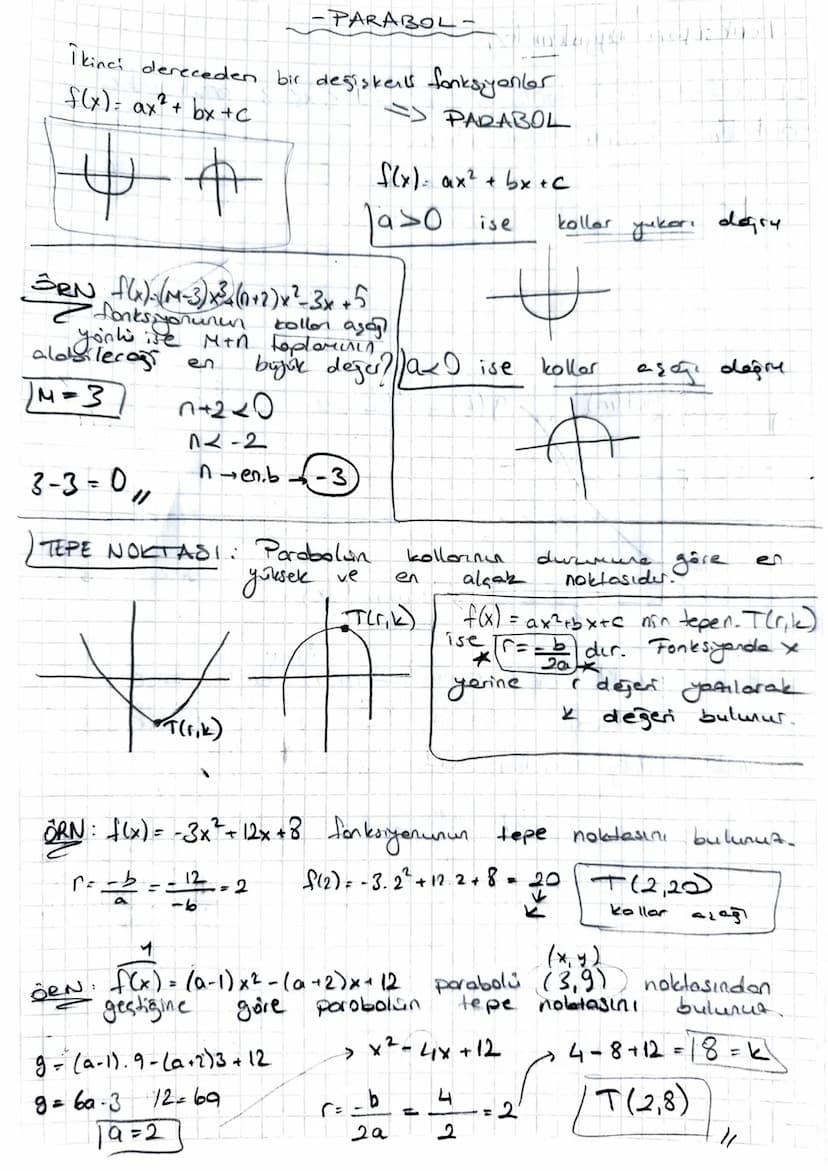 - PARABOL -
İkinci dereceden bir değişkenli fonksiyonlar
f(x) = ax² + bx + c
=> PARABOL
f(x) = ax² + bx + c
a>0 ise kollar yukarı doğru
ÖRN f(x)=(M-3)x³+(n+2)x²-3x+5
fonksiyonunun kolları aşağı
yönlü ise M+n toplamının
alabileceği en büyük değer?
M = 3
n+2<0
n< -2
n → en.b → -3
3-3 = 0 //
a<0 ise kollar aşağı doğru
TEPE NOKTASI: Parabolün kollarının durumuna göre en
yüksek ve en alçak noktasıdır.
T(r,k)
T(r,k)
f(x) = ax²+bx+c nin tepen. T(r,k)
ise r = -b/2a dır. Fonksiyonda x
yerine r değeri yazılarak
k değeri bulunur.
ÖRN: f(x) = -3x² + 12x + 8 fonksiyonunun tepe noktasını bulunuz.
r = -b/a = -12/-6 = 2
f(2) = -3.2² + 12.2 + 8 = 20
k
T(2,20)
kollar aşağı
y
(x, y)
ÖRN: f(x) = (a-1)x² - (a+2)x + 12 parabolü (3,9) noktasından
geçtiğine göre parobolün tepe noktasını bulunuz.
9 = (a-1).9 - (a+2)3 + 12
9 = 6a - 3 12 = 6a
a = 2
→ x² - 4x + 12
r = -b/2a = 4/2 = 2
→ 4 - 8 + 12 = 8 = k
T(2,8) //